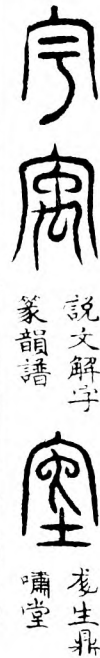 宇
㝢
說文解字
篆韻譜
生鼎
嘯堂